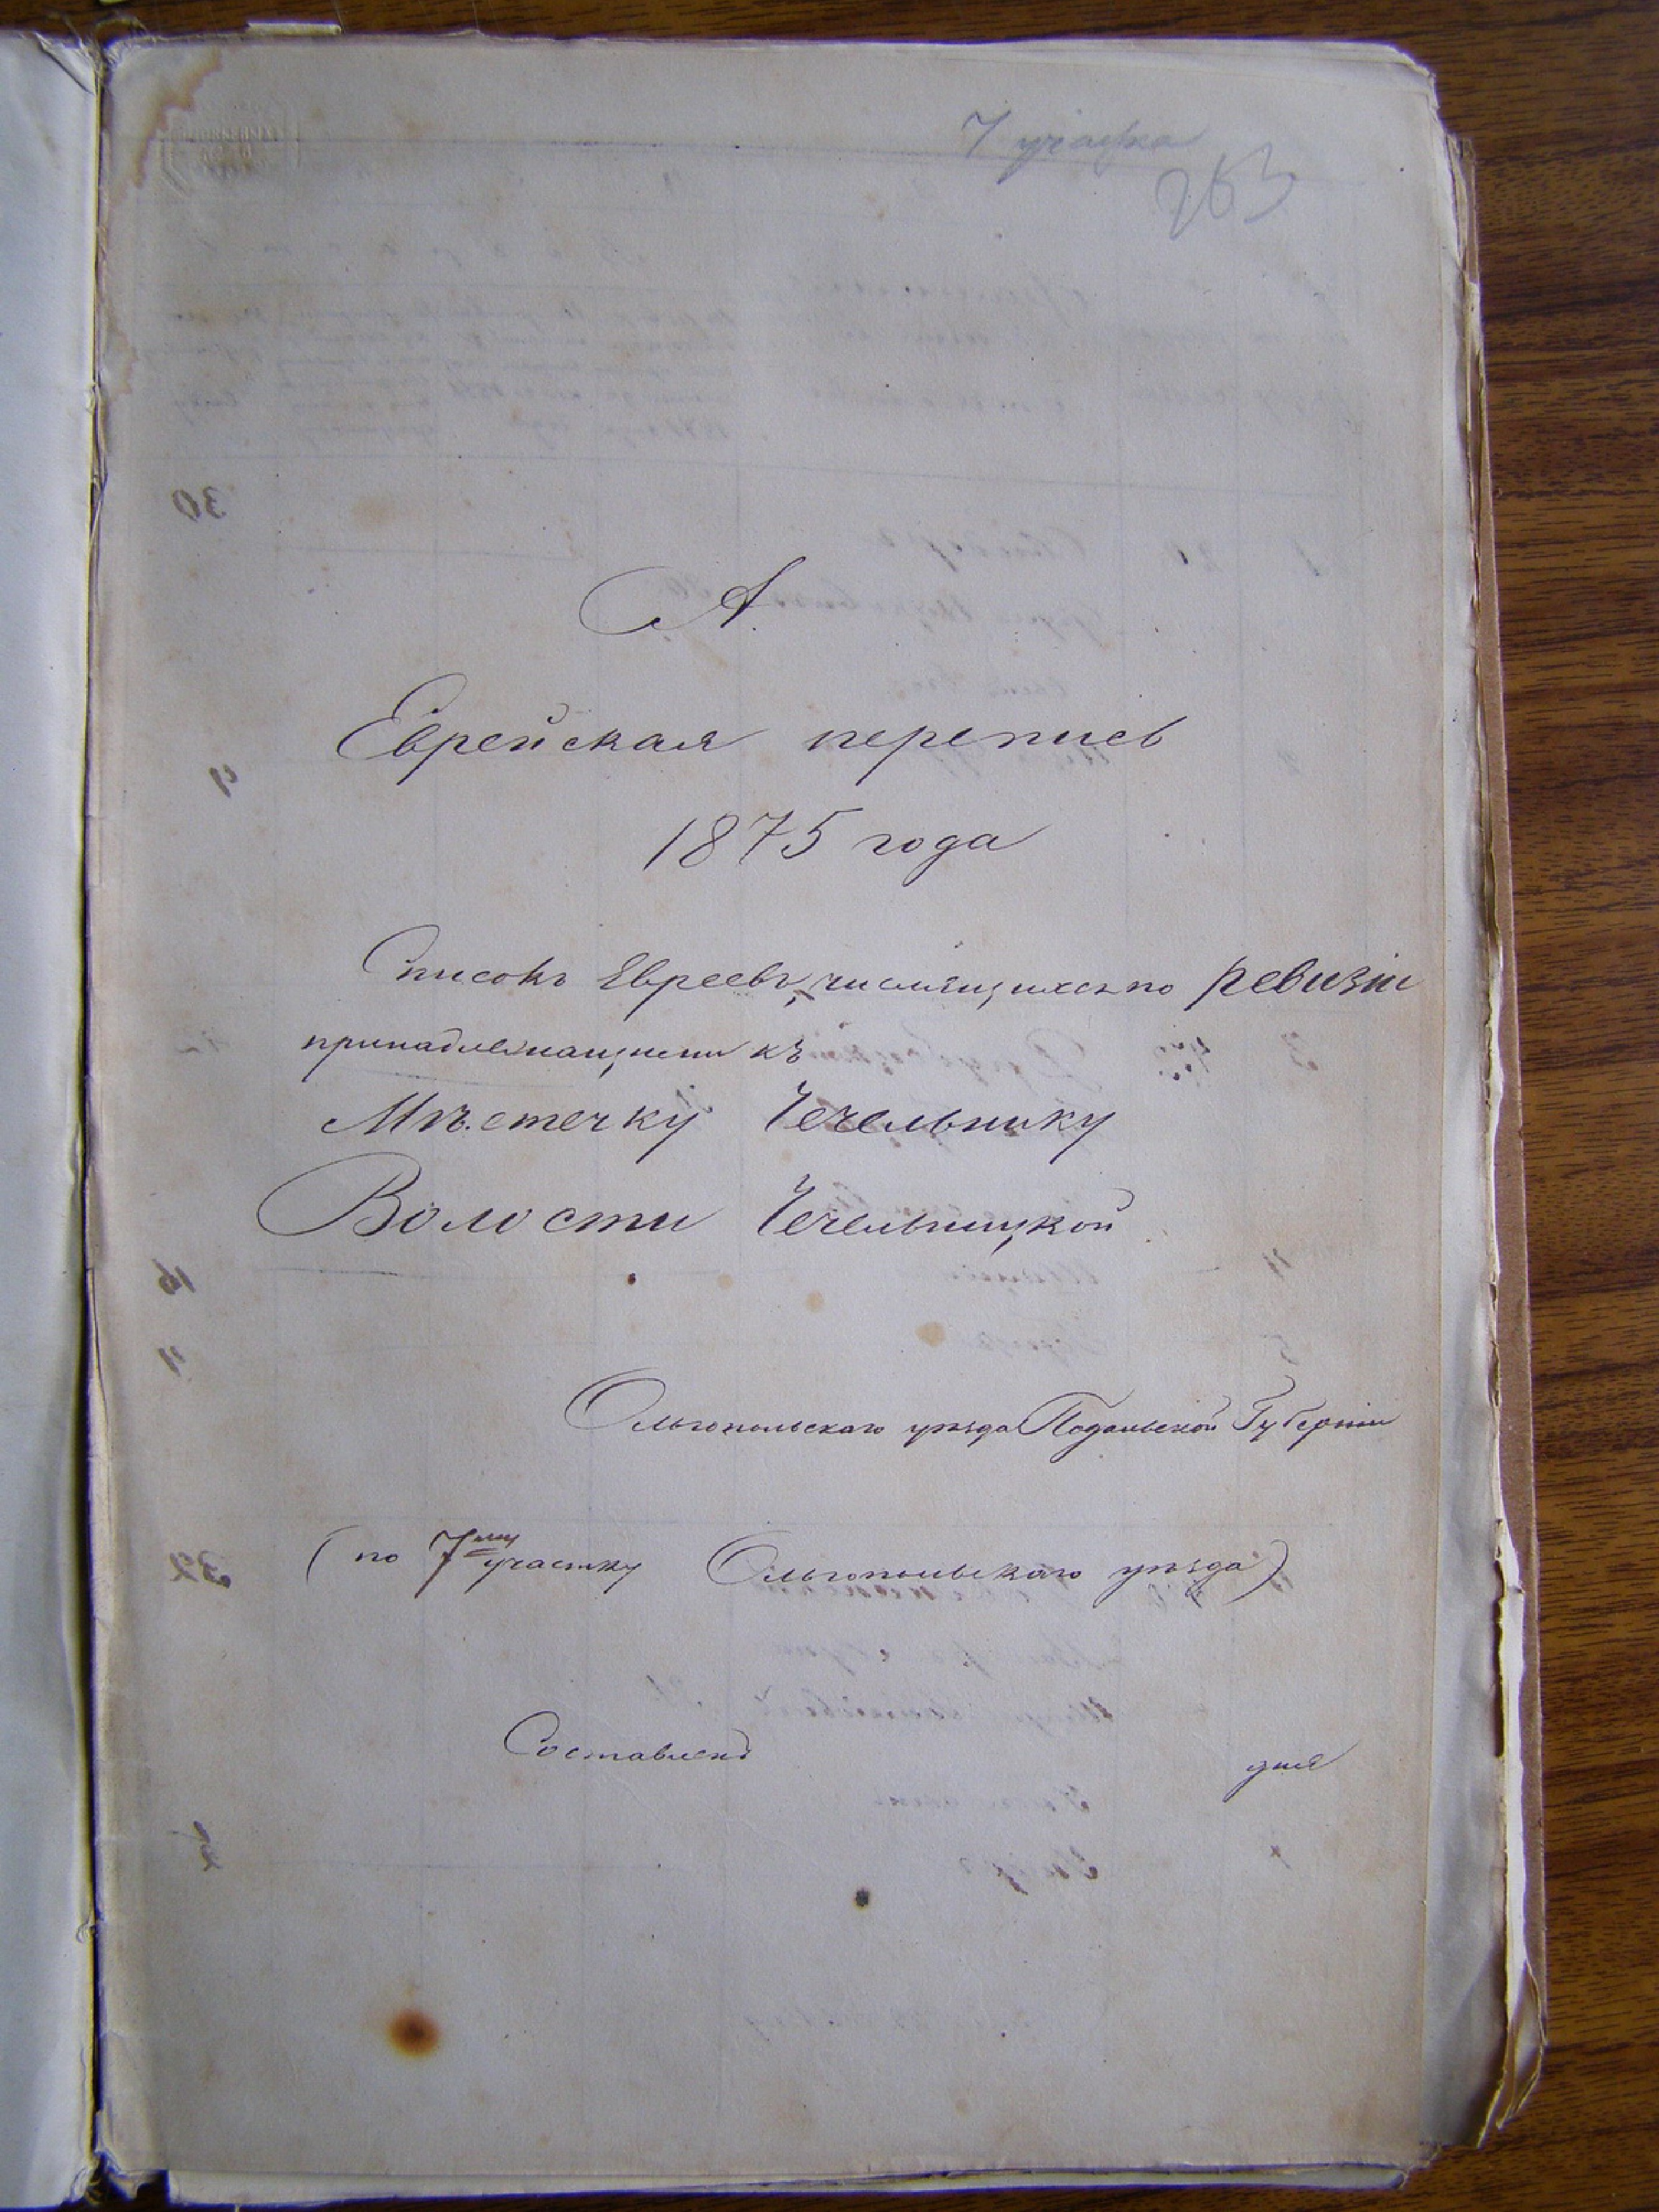 7 участка
263
А.
Еврейская перепись
1875 года
Списокъ Евреевъ, числящихся по ревизіи
принадлежащими къ
Мѣстечку Чечельнику
Волости Чечельницкой
Ольгопольскаго уѣзда Подольской Губерніи
(по 7му участку Ольгопольскаго уѣзда)
Составленъ дня